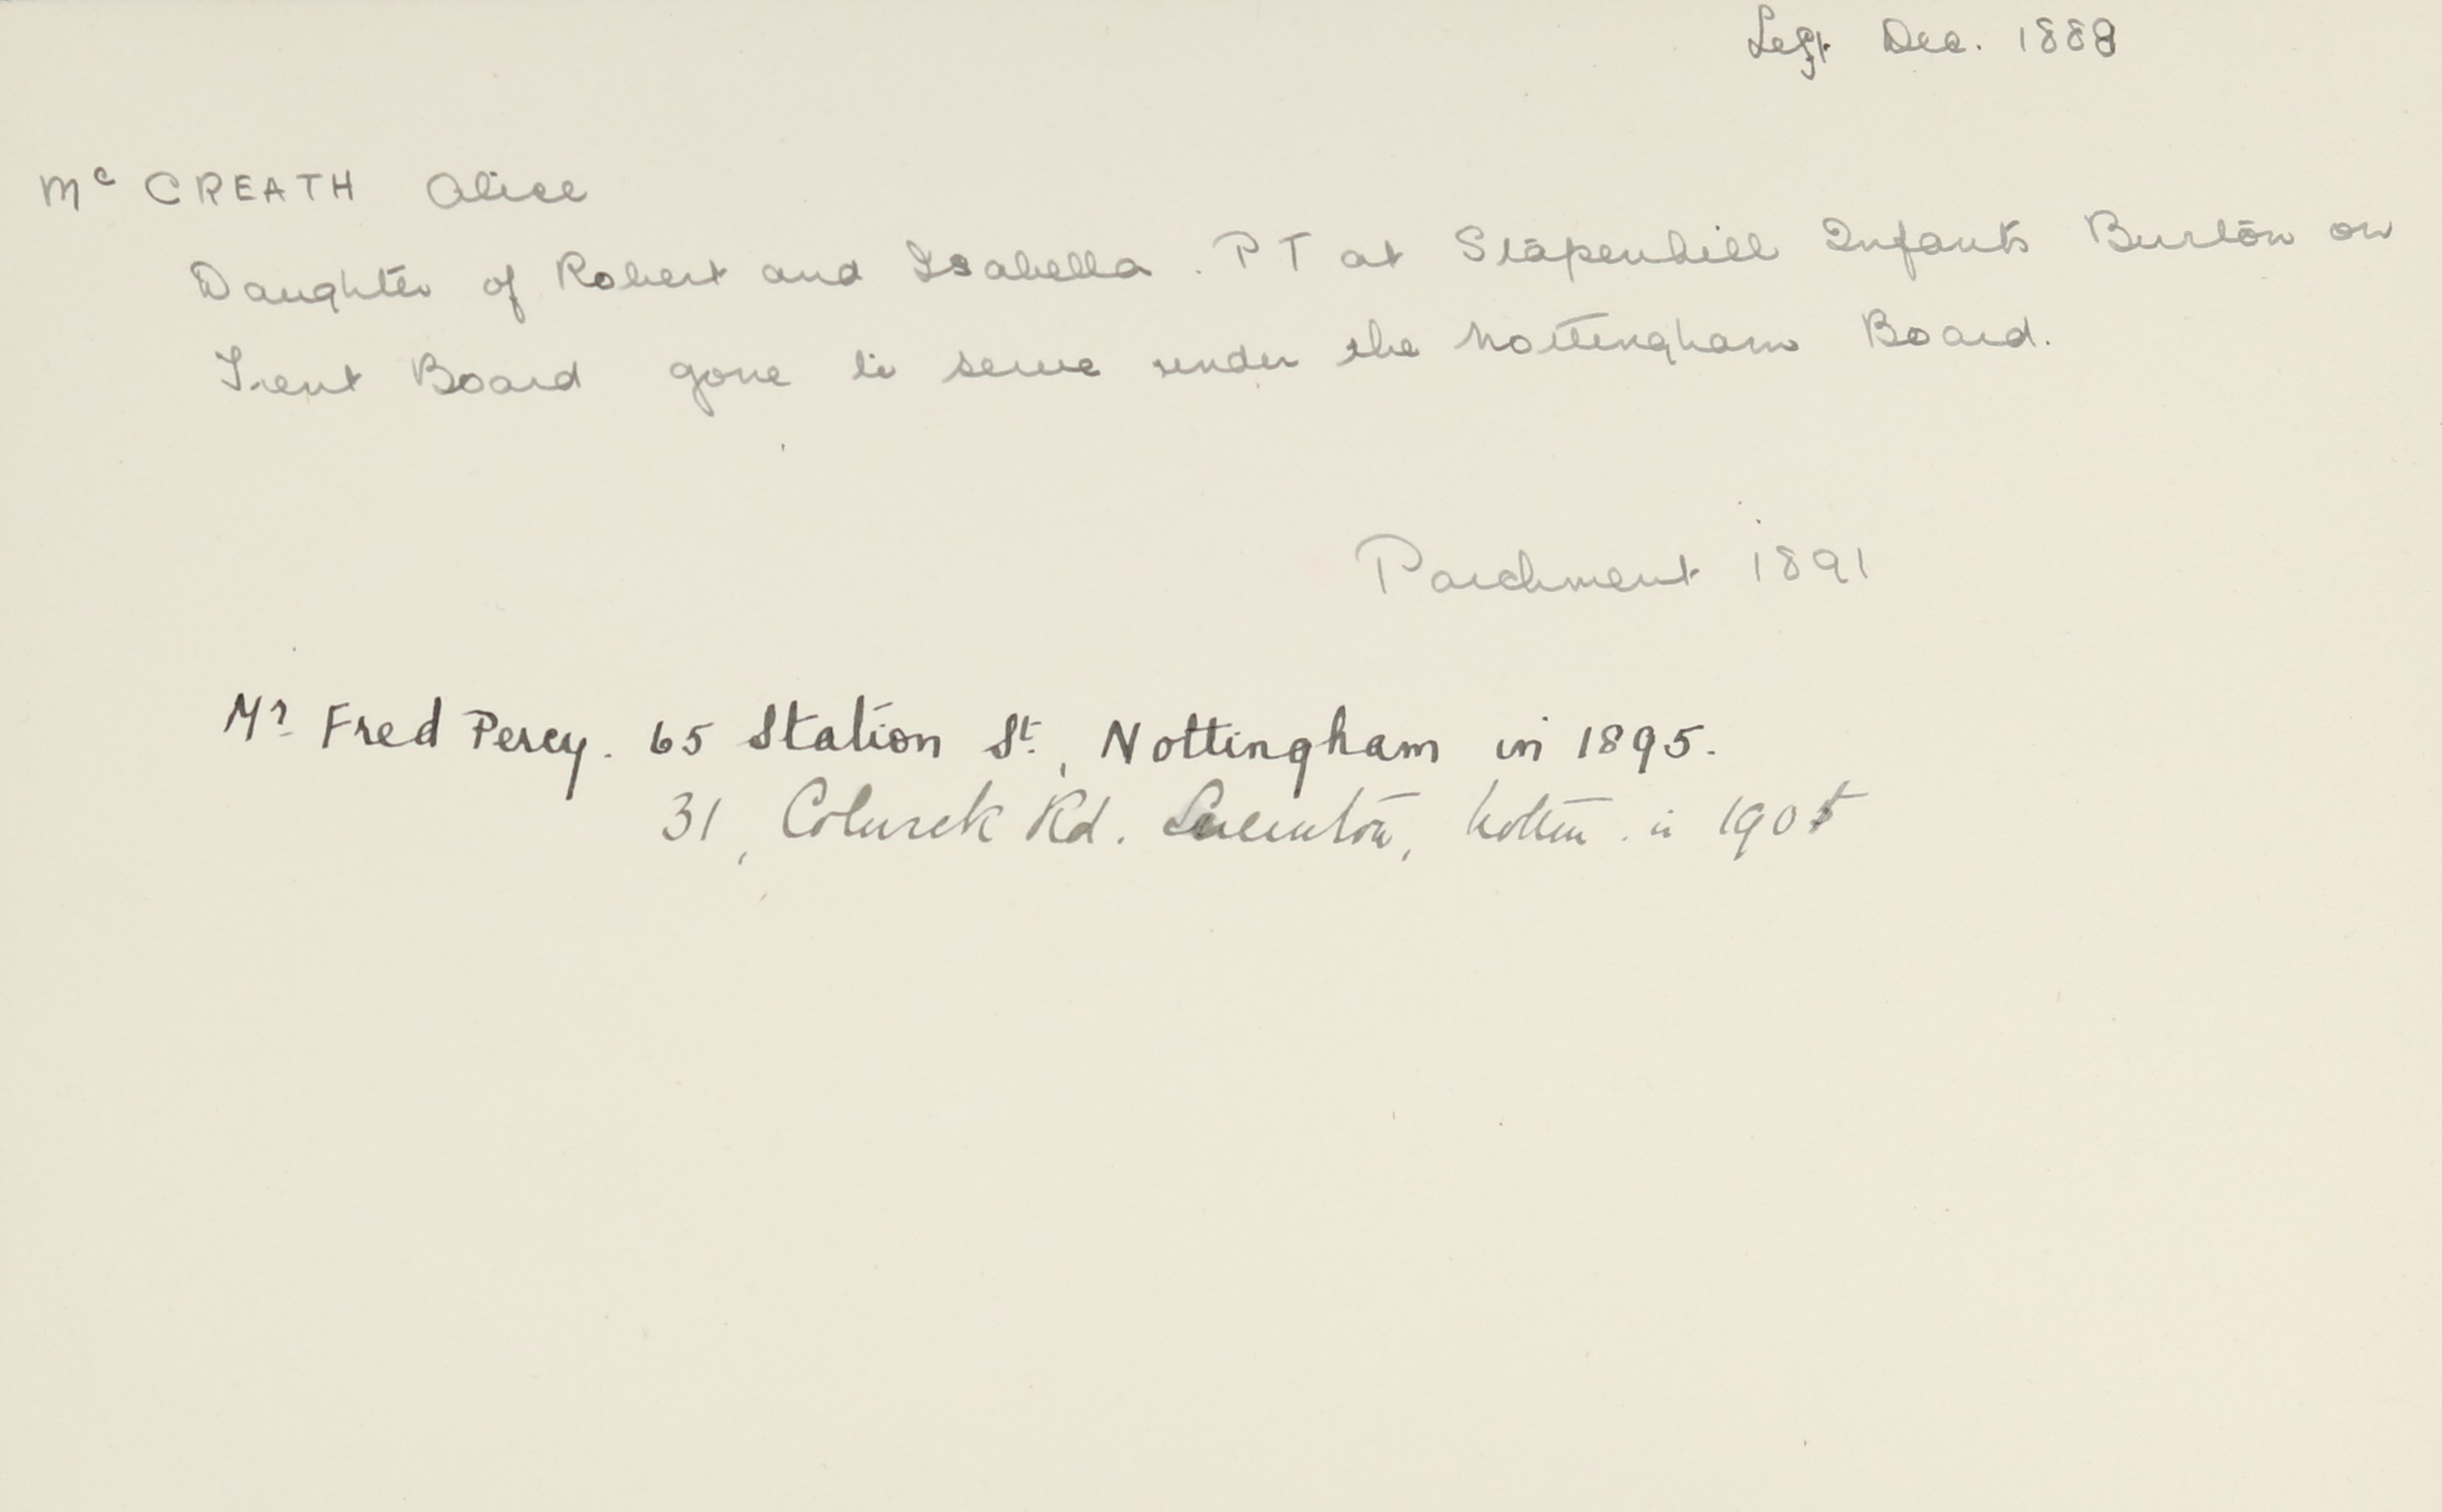 Left Dec. 1888
Mc CREATH Alice
Daughter of Robert and Isabella. PT at Stapenhill Infants Burton on
Trent Board gone to serve under the Nottingham Board.
Parchment 1891
Mr Fred Percy. 65 Station St, Nottingham in 1895.
31, Rd. Lenton, Nottm. in 1905